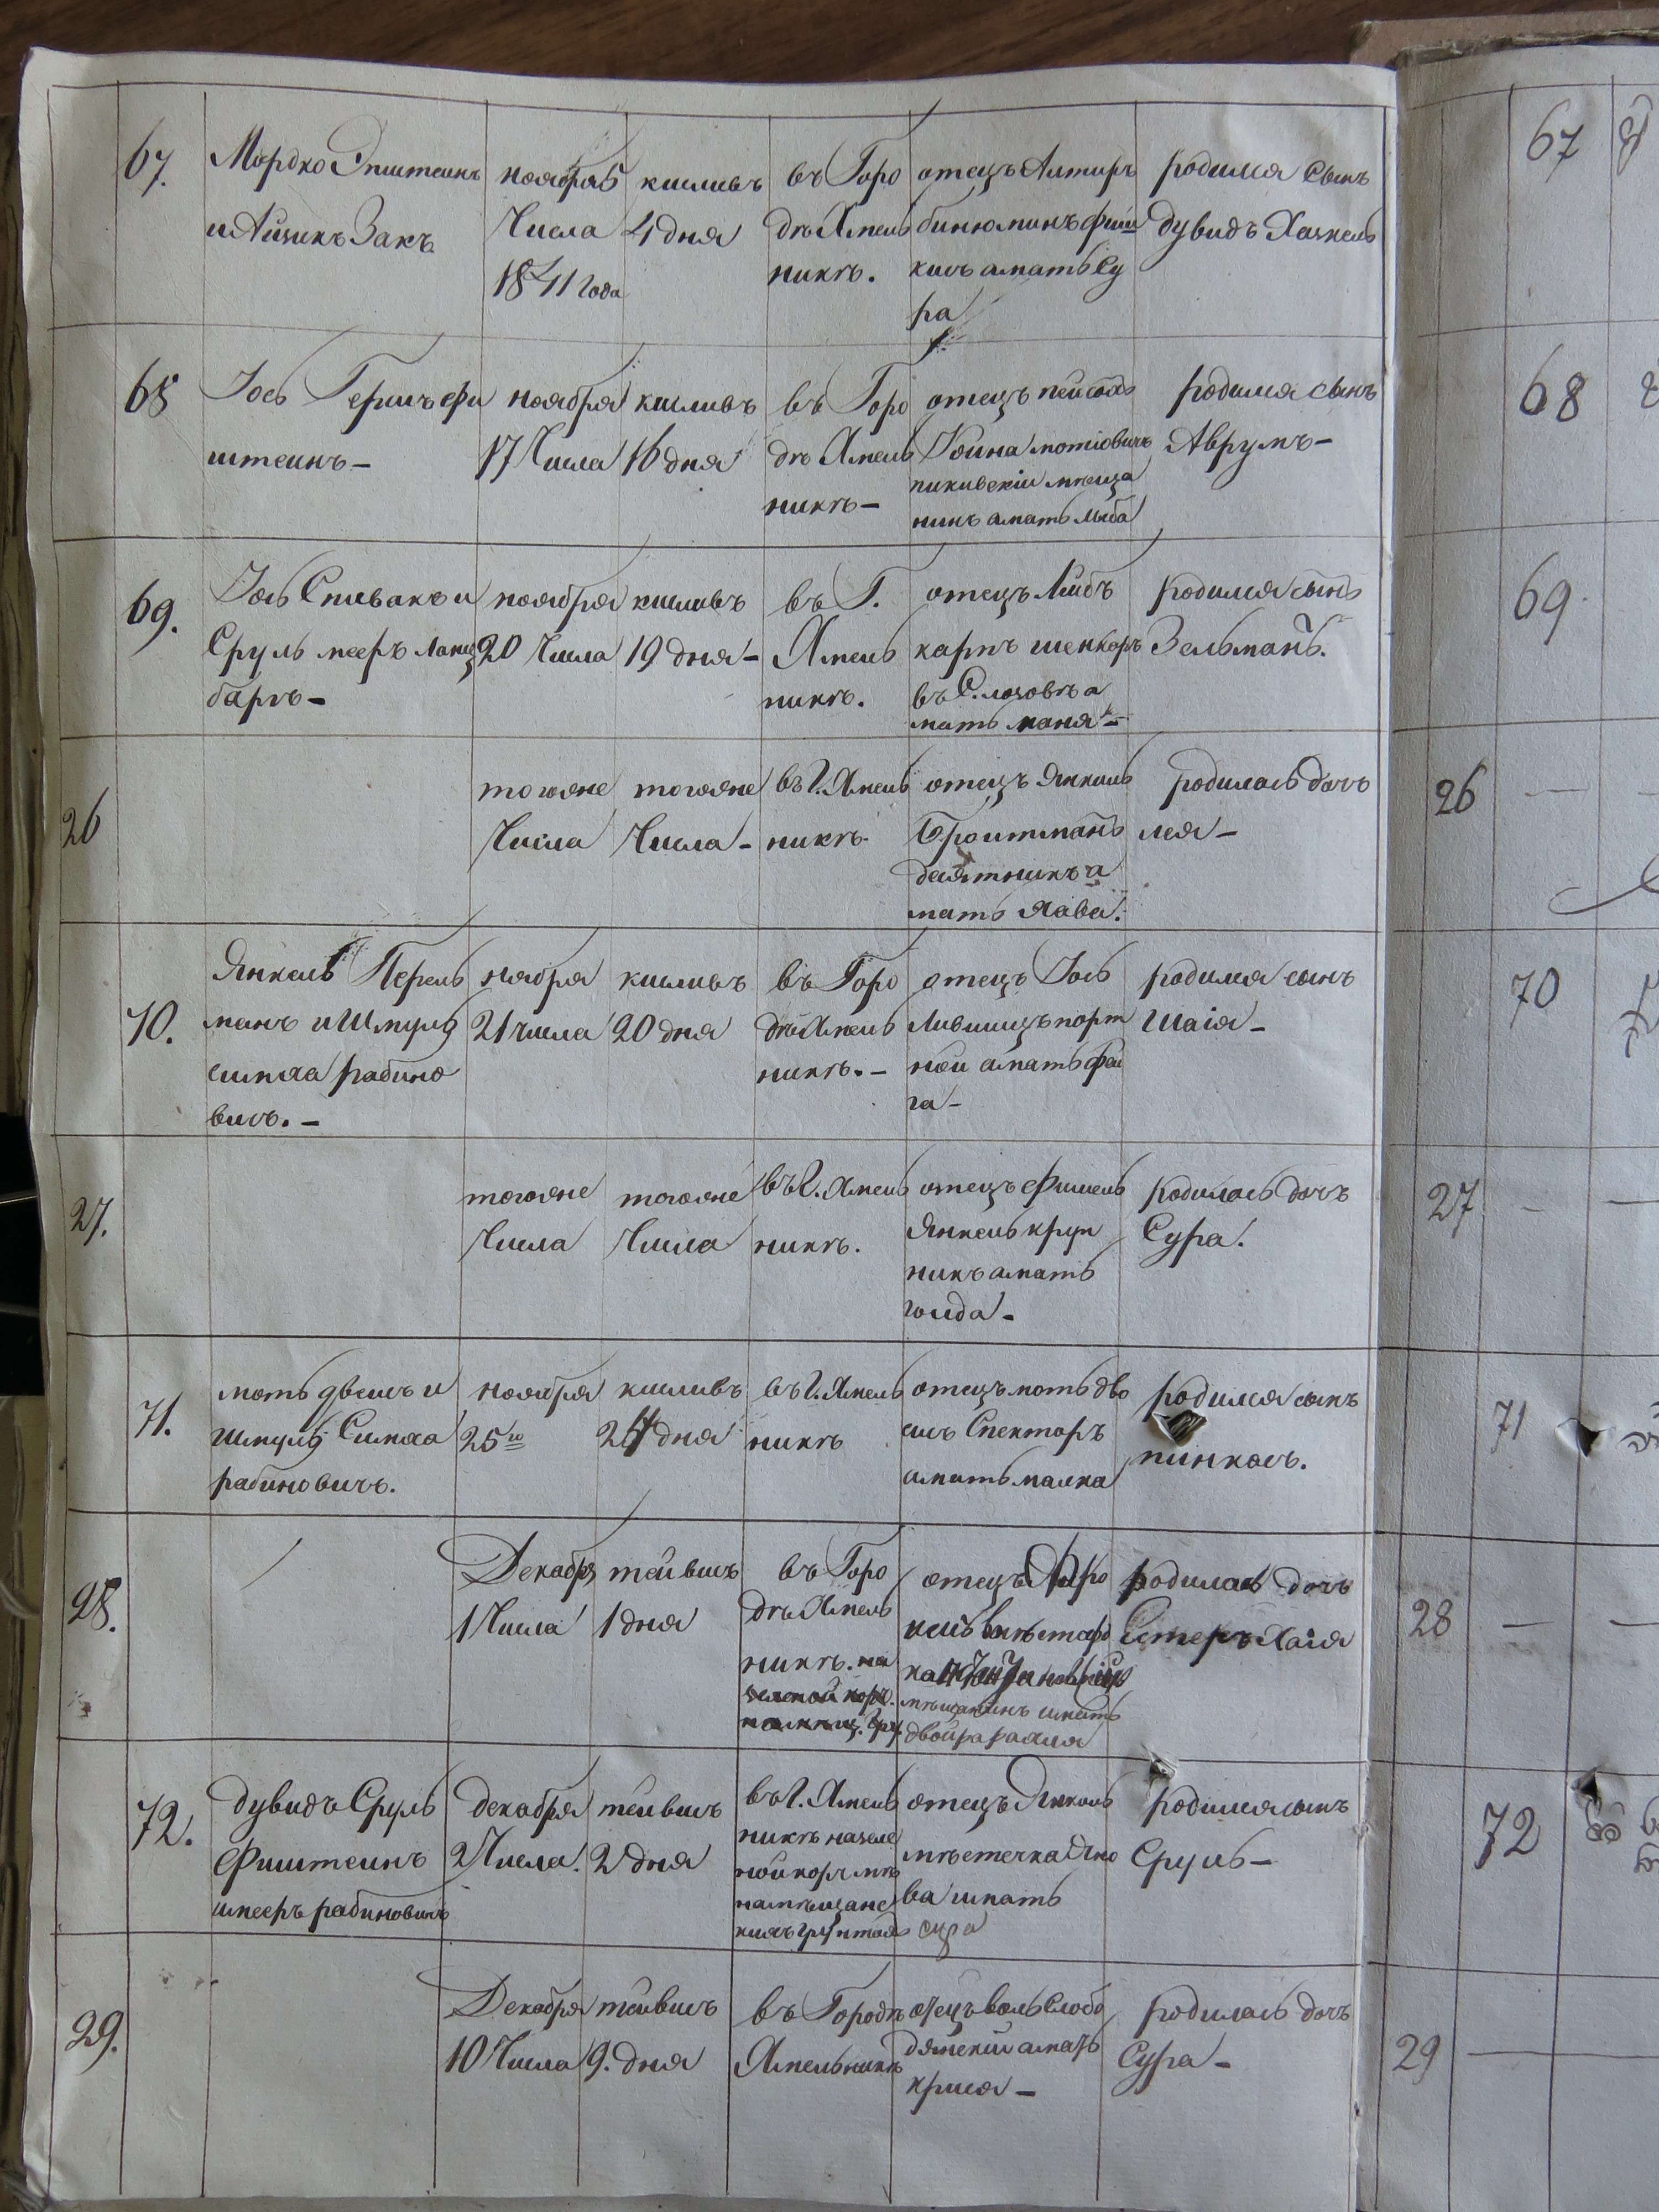 67.
Мордко Эпштеинъ
и Айзикъ Закъ
ноября 5
Числа
1841 года
кисливъ
4 дня
въ Горо
дѣ Хмель
никѣ.
отецъ Алтиръ
бинюминъ фиш
кисъ а мать Су
ра
родился Сынъ
дувидъ Хаскель
68
Іось Гершъ фи
штеинъ –
ноября
17 Числа
кисливъ
16 дня
въ Горо
дѣ Хмель
никѣ –
отецъ пейсахъ
Іойна
пикивскіи мѣща
нинъ а мать лыба
родился сынъ
Аврумъ –
69.
Іось Спивакъ и
Сруль мееръ
барѣ –
ноября
20 Числа
кисливъ
19 дня –
въ Г.
Хмель
никѣ.
отецъ Лейбъ
карпъ шенкоръ
въ С. лозовѣ а
мать маня –
родился сынъ
Зельманъ.
26
тогоже
Числа
тогоже
Числа –
въ Г. Хмель
никѣ
отецъ Янкель
Броитманъ
десятникъ а
мать Хава.
родилась дочъ
лея –
70.
Янкель Перель
манъ и Шмуль
симха рабино
вичъ. –
ноября
21 числа
кисливъ
20 дня
въ Горо
дѣ Хмель
никѣ. –
отецъ Іось
Лившицъ порт
нои а мать фаи
га –
родился сынъ
шаія –
27.
тогоже
Числа
тогоже
Числа
въ Г. Хмель
никѣ.
отецъ Фишель
Янкель круп
никъ а мать
голда –
родилась дочъ
Сура.
71.
моть двеисъ и
шмуль Симха
рабиновичъ.
ноября
25го
кисливъ
24 дня
въ Г. Хмель
никѣ
отецъ моть дво
сисъ Спекторъ
а мать малка
родился сынъ
пинкасъ.
28.
Декабря
1 Числа
теивисъ
1 дня
въ Горо
дѣ Хмель
никѣ. на
отецъ
мѣщанинъ и мать
двойра рахля
родилась дочъ
Естеръ Хаія
72.
дувидъ Сруль
Фиштеинъ
и мееръ рабиновичъ
декабря
2 Числа.
теивисъ
2 дня
въ Г. Хмель
никѣ назеле
ной корчмѣ
на мѣщанс
кихъ грунтахъ
отецъ Янкель
мѣстечка Яно
ва и мать
сура
родился сынъ
Сруль –
29.
Декабря
10 Числа
теивисъ
9. дня
въ Городѣ
Хмельникѣ
отецъ воль Слобо
дянскіи а мать
крися –
родилась дочъ
Сура –
67
68
69
26
70
27
71
28
72
29